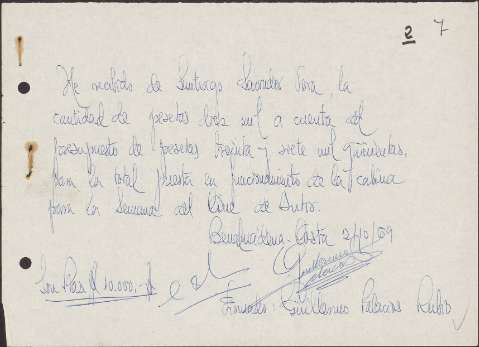 2 7
He recibido de Santiago Saavedra Vora, la
cantidad de pesetas a cuenta del
presupuesto de pesetas treinta y siete mil quinientas,
para la total puesta en funcionamiento de la cabina
para la Semana del Cine de Autor.
Benalmádena-Costa 2/10/69
Son Ptas # 10.000,-#
Firmado: Guillermo Palacios Rubio